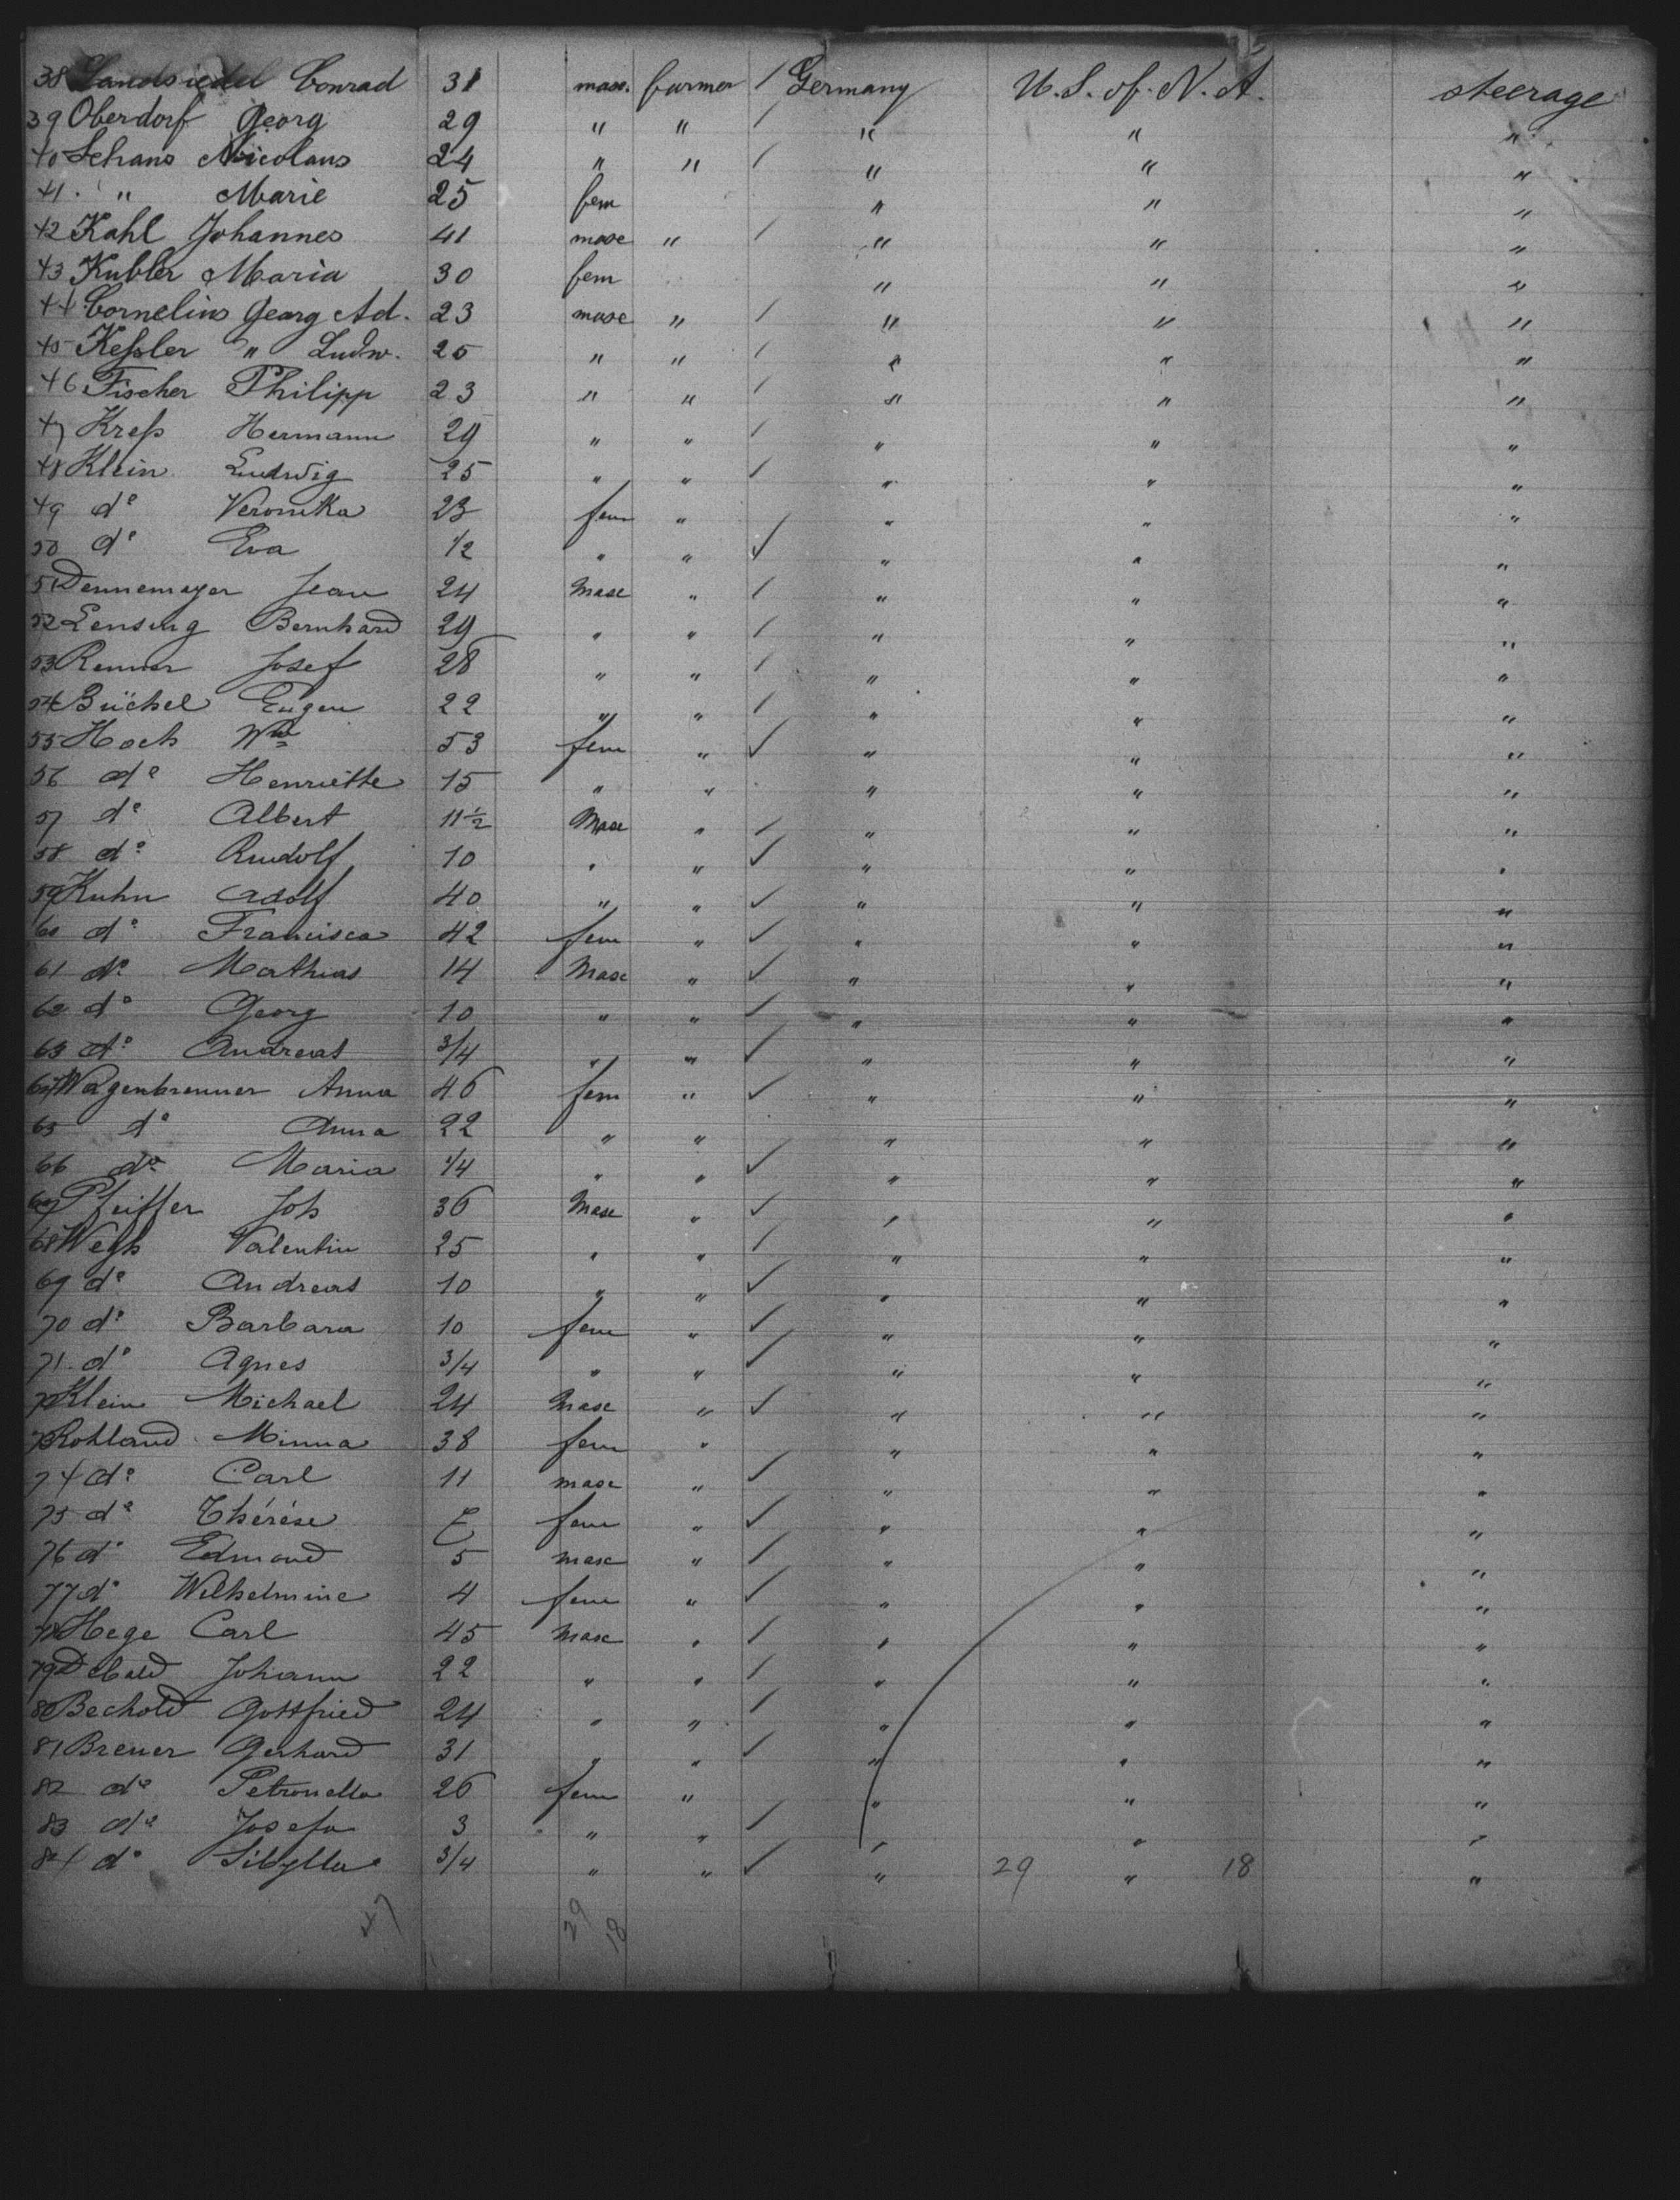 38 Landsiedel Conrad 31 masc. farmer / Germany U. S. of. N. A. steerage
39 Oberdorf Georg 29 " " / " " "
40 Schans Nicolaus 24 " " / " " "
41 " Marie 25 fem " " "
42 Kahl Johannes 41 masc " / " " "
43 Kubler Maria 30 fem " " "
44 Cornelius Georg Ad. 23 masc " / " " "
45 Keßler " Ludw. 25 " " / " " "
46 Fischer Philipp 23 " " / " " "
47 Kreß Hermann 29 " " / " " "
48 Klein Ludwig 25 " " / " " "
49 do Veronika 23 fem " " " "
50 do Eva 1/2 " " ✓ " " "
51 Dennemeyer Jean 24 Masc " / " " "
52 Lensing Bernhard 29 " " / " " "
53 Renner Josef 28 " " / " " "
54 Büchel Eugen 22 " " / " " "
55 Hoch Wwe 53 fem " ✓ " " "
56 do Henriette 15 " " " " "
57 do Albert 11 1/2 Masc " ✓ " " "
58 do Rudolf 10 " " ✓ " " "
59 Kuhn Adolf 40 " " ✓ " " "
60 do Francisca 42 fem " ✓ " " "
61 do Mathias 14 Masc " ✓ " " "
62 do Georg 10 " " ✓ " " "
63 do Andreas 3/4 " " ✓ " " "
64 Wagenbrenner Anna 46 fem " ✓ " " "
65 do Anna 22 " " " " "
66 do Maria 1/4 " " ✓ " " "
67 Pfeiffer Joh 36 Masc " ✓ " " "
68 Valentin 25 " " / " " "
69 do Andreas 10 " " ✓ " " "
70 do Barbara 10 fem " ✓ " " "
71 do Agnes 3/4 " " ✓ " " "
72 Klein Michael 24 Masc " ✓ " " "
73 Rohland Minna 38 fem " " " "
74 do Carl 11 masc " ✓ " " "
75 do Thérése fem " ✓ " " "
76 do Edmond 5 masc " ✓ " " "
77 do Wilhelmine 4 fem " ✓ " " "
78 Hege Carl 45 Masc " / " " "
79 Debald Johann 22 " " / " " "
80 Bechold Gottfried 24 " " / " " "
81 Breuer Gerhard 31 " " ✓ " " "
82 do Petronella 26 fem " " " "
83 do Josefa 3 " " ✓ " " "
84 do Sibylla 3/4 " " ✓ " 29 " 18 "
47 29 18